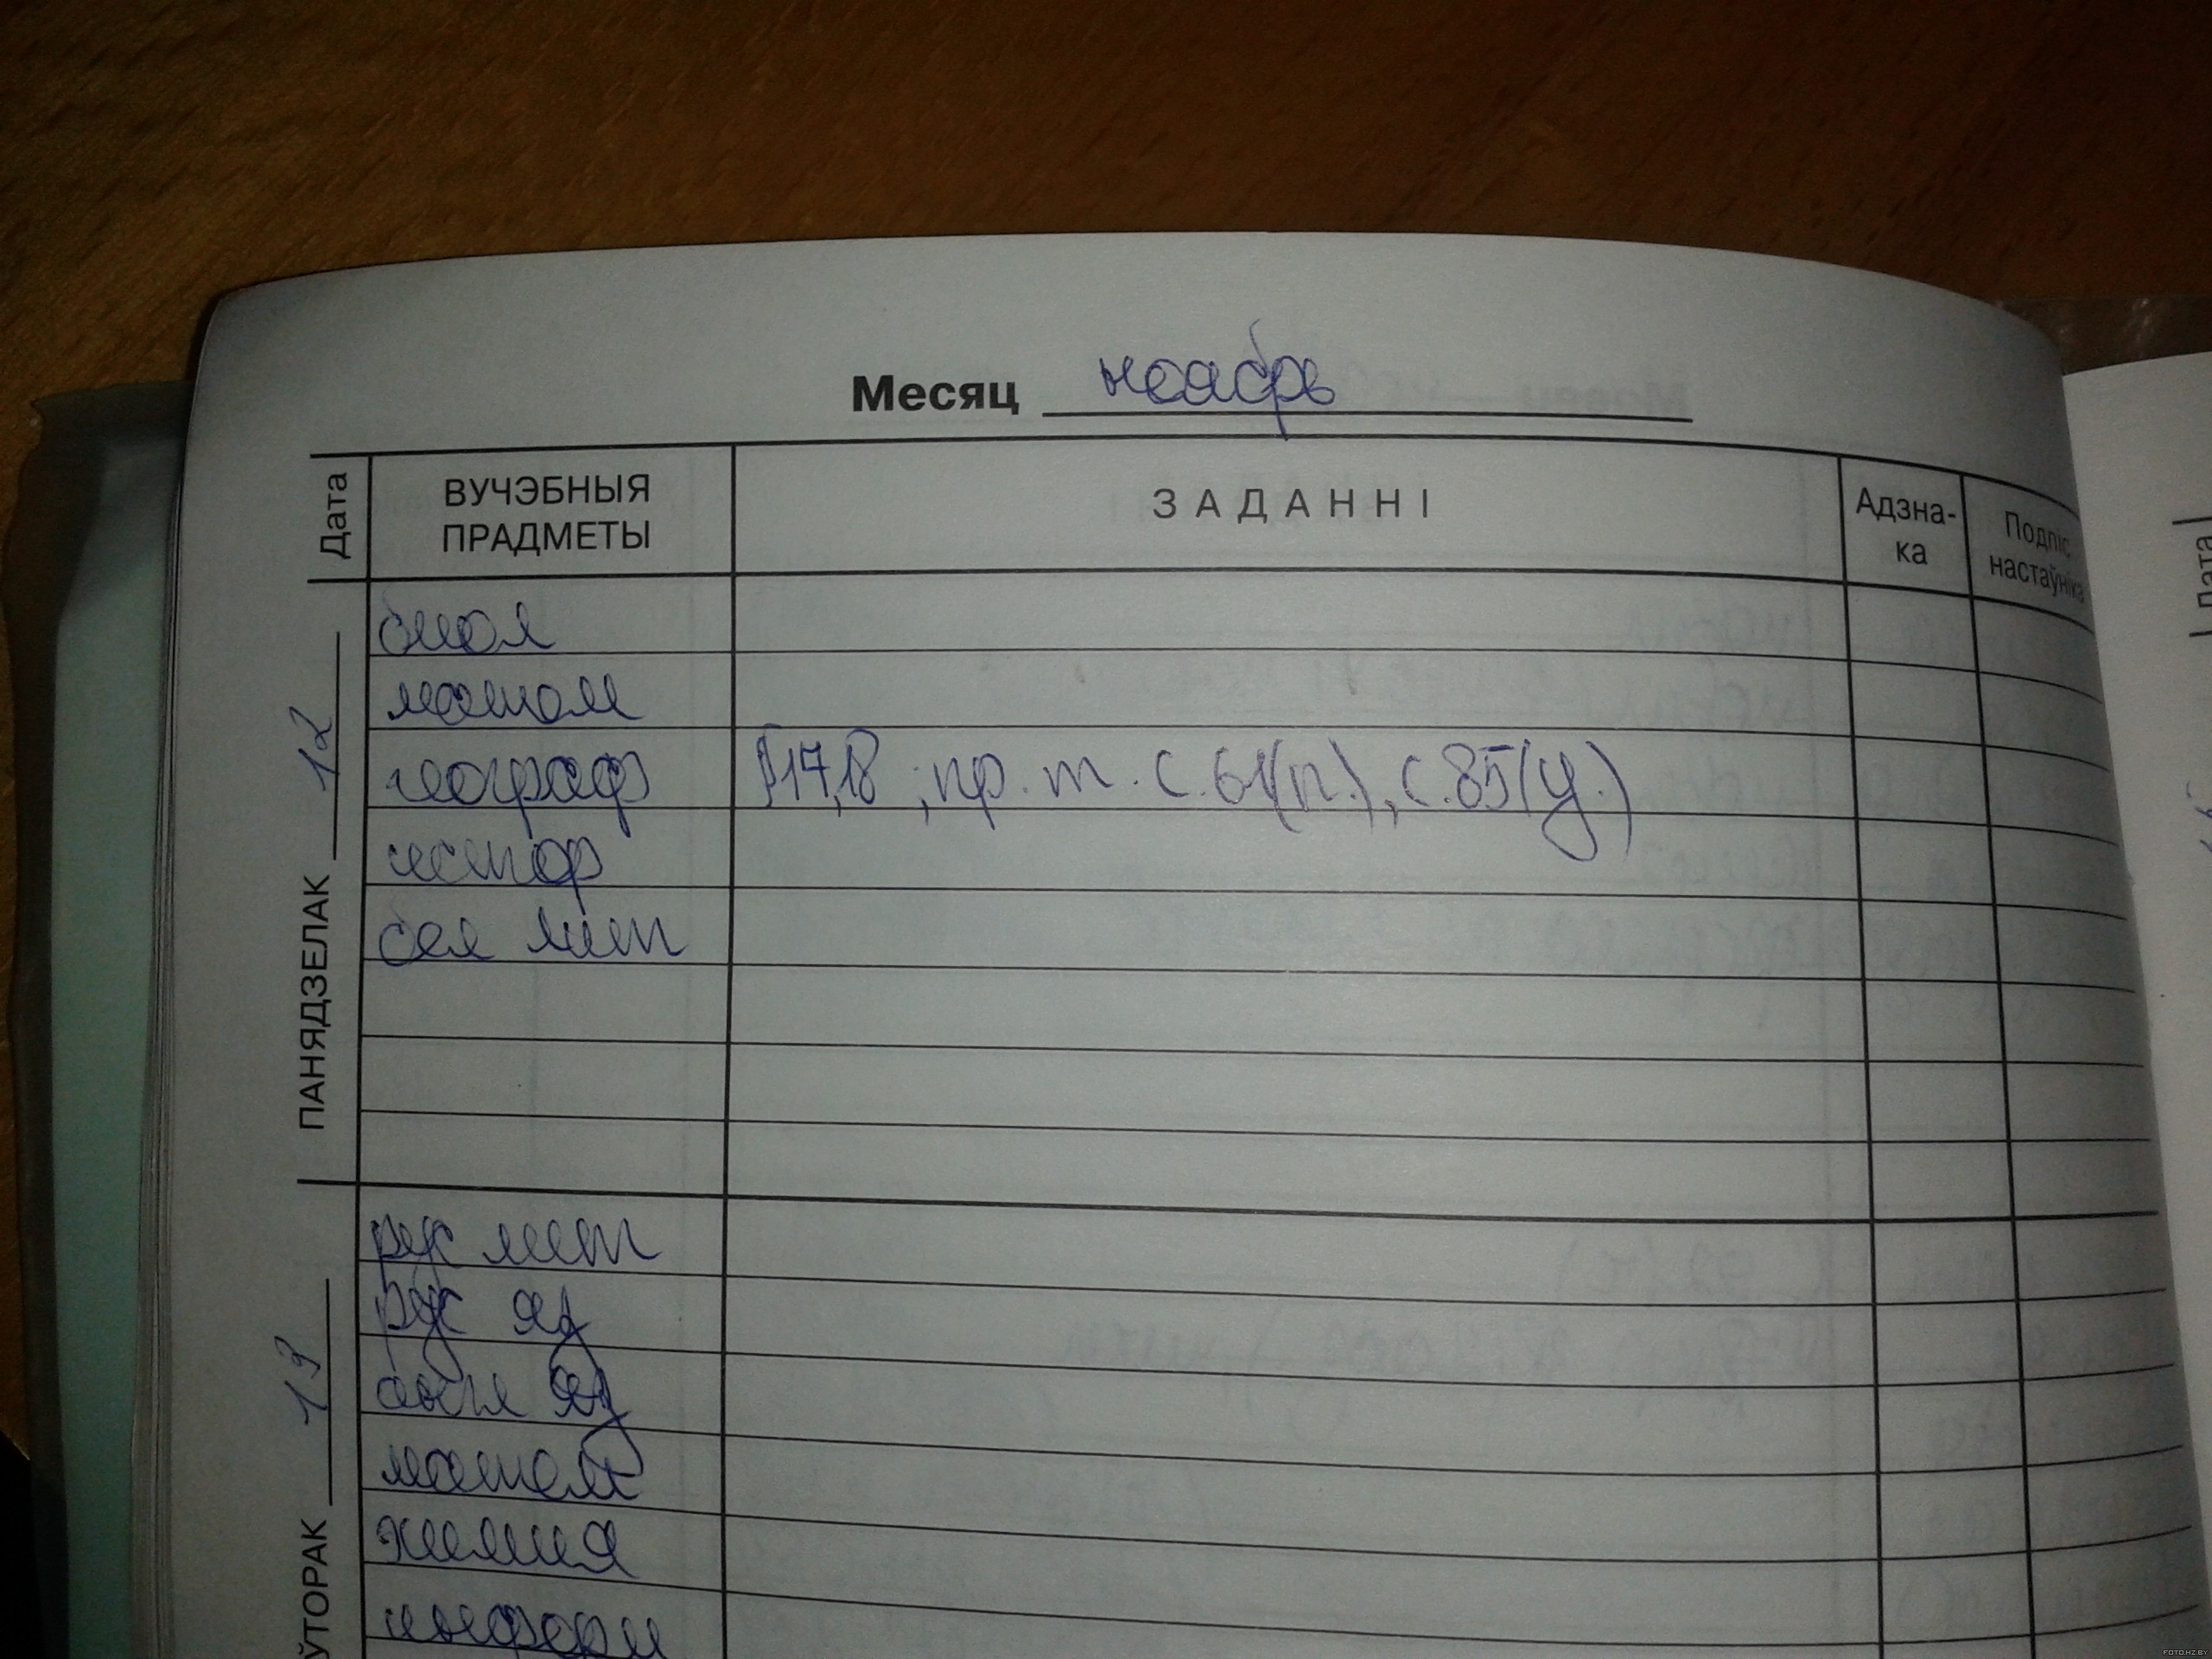 Месяц ноябрь
Дата
ВУЧЭБНЫЯ
ПРАДМЕТЫ
ЗАДАННІ
Адзна-
ка
Подпіс
настаўніка
ПАНЯДЗЕЛАК 12
биол
матем
географ §17,18; пр. т. с. 61(п.), с.85(у.)
истор
бел лит
ЎТОРАК 13
рус лит
рус яз
бел яз
матем
химия
информ
Дата
FOTO.HZ.BY